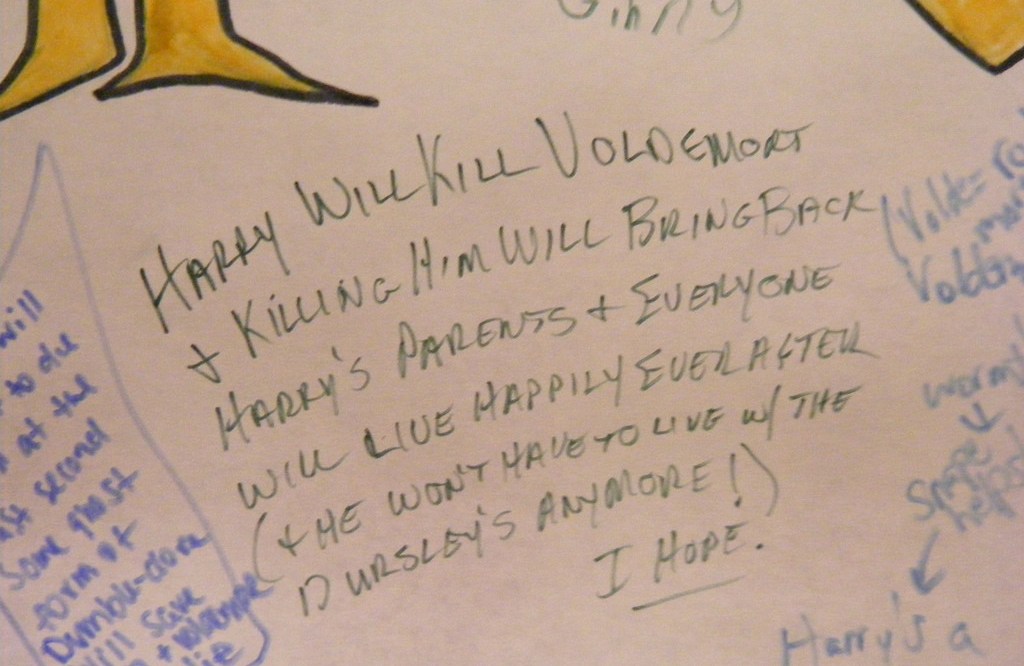 Ginny
HARRY WILL KILL VOLDEMORT
+ KILLING HIM WILL BRING BACK
HARRY'S PARENTS + EVERYONE
WILL LIVE HAPPILY EVER AFTER
(+ HE WON'T HAVE TO LIVE W/ THE
DURSLEY'S ANYMORE!)
I HOPE.
will
to die
at the
second
Some ghost
form of
Dumble-dore
will save
+
die
(Volde
Voldem
worm
Snape
helps
Harry's a